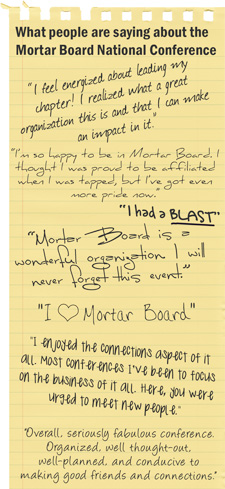 What people are saying about the
Mortar Board National Conference
"I feel energized about leading my
chapter! I realized what a great
organization this is and that I can make
an impact in it."
"I'm so happy to be in Mortar Board. I
thought I was proud to be affiliated
when I was tapped, but I've got even
more pride now.
"I had a BLAST"
"Mortar Board is a
wonderful organization. I will
never forget this event."
"I ♡ Mortar Board"
"I enjoyed the connections aspect of it
all. Most conferences I've been to focus
on the business of it all. Here, you were
urged to meet new people."
"Overall, seriously fabulous conference.
Organized, well thought-out,
well-planned, and conducive to
making good friends and connections."